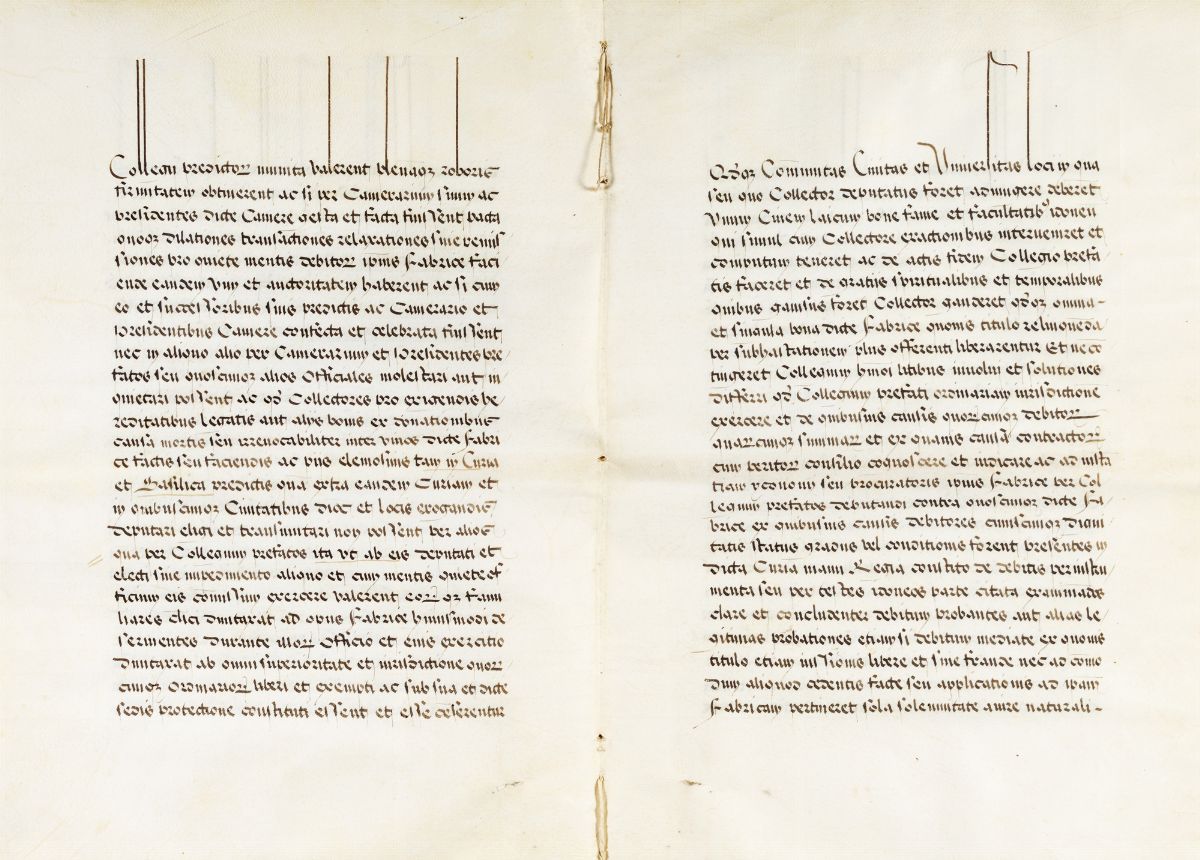 Collegii predictor munita valerent plenaqz roboris
firmitatem obtinerent ac si per Camerarium summ ac
presidentes dicte Camere gesta et facta fuissent pacta
quoqz dilationes transactiones relaxationes sive remis
siones pro quiete mentis debitor ipsius Fabrice faci
ende eandem vim et auctoritatem haberent ac si cum
eo et successoribus suis predictis ac Camerario et
presidentibus Camere confecta et celebrata fuissent
nec in aliquo alio per Camerarium et presidentes pre
fatos seu quoscunqz alios Officiales molestari aut in
quietari possent ac qd Collectores pro exigendis he
reditatibus legatis aut alijs bonis ex donationibus
causa mortis seu irrevocabiliter inter vivos dicte Fabri
ce factis seu faciendis ac piis elemosinis tam in Curia
et Basilica predictis qua extra eandem Curiam et
in quibuscunqz Civitatibus dioc et locis erogandis
deputari eligi et transmutari non possent per alios
qua per Collegium prefatos ita vt ab eis deputati et
electi sine impedimento aliquo et cum mentis quiete of
ficium eis comissum exercere valerent eorqz fami
liares clici dumtaxat ad opus Fabrice huiusmodi de
servientes durante illor Officio et eius exercitio
dumtaxat ab omni superioritate et iurisdictione quor
cunqz Ordinarior liberi et exempti ac sub sua et dicte
sedis protectione constituti essent et esse censerentur
Qdqz Comunitas Civitas et Vniversitas loci in qua
seu quo Collector deputatus foret adiungere deberet
Vnum Civem laicum bone fame et facultatib9 idoneu
qui simul cum Collectore exactionibus interveniret et
computum teneret ac de actis fidem Collegio prefa
tis faceret et de gratiis spiritualibus et temporalibus
quibus gavisus foret Collector gauderet qdqz omnia
et singula bona dicte Fabrice quovis titulo relinquenda
per subhastationem plus offerenti liberarentur Et ne co
tingeret Collegium huiusmodi litibus involui et solutiones
differri qd Collegium prefati ordinariam iurisdictione
exercere et de quibusvis causis quorcunqz debitor
quarcunqz summar et ex quavis causa contractor
cum peritor consilio cognoscere et iudicare ac ad insta
tiam yconomi seu procuratoris ipsius Fabrice per Col
legium prefatos deputandi contra quoscunqz dicte Fa
brice ex quibusvis causis debitores cuiuscunqz digni
tatis status gradus vel conditionis forent presentes in
dicta Curia manu Regia constito de debitis per instru
menta seu per testes idoneos parte citata examinados
clare et concludenter debitum probantes aut alias le
gitimas probationes etiam si debitum mediate ex quovis
titulo etiam iussionis libere et sine fraude nec ad como
dum aliquod cedentis facte seu applicationis ad ipsam
Fabricam pertineret sola solemnitate iure naturali